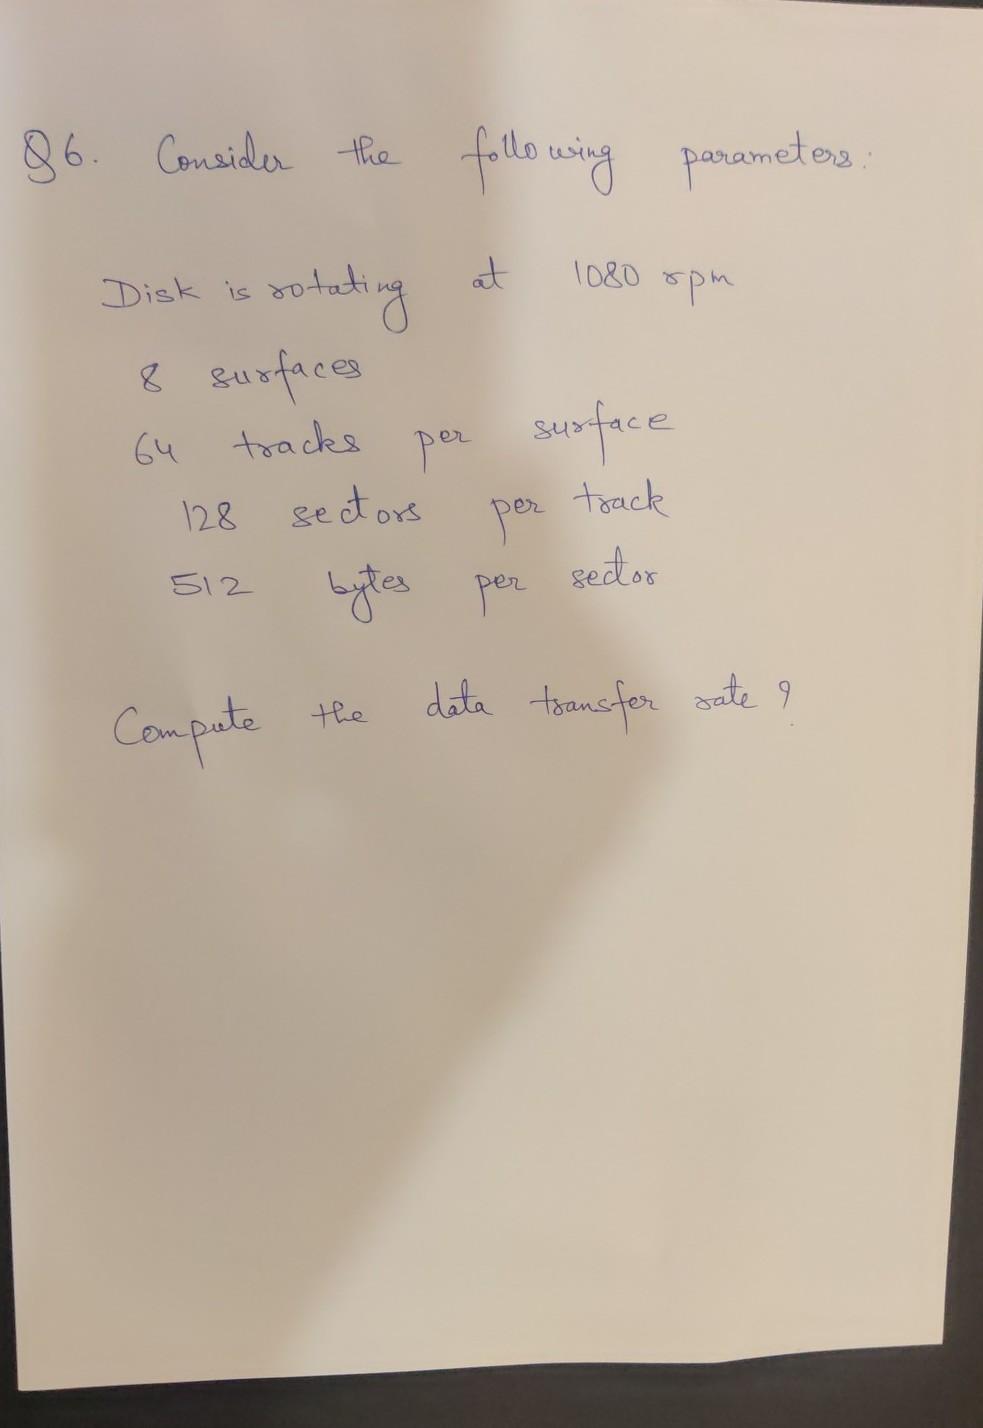 Q6. Consider the following parameters:
Disk is rotating at 1080 rpm
8 surfaces
64 tracks per surface
128 sectors per track
512 bytes per sector
Compute the data transfer rate ?